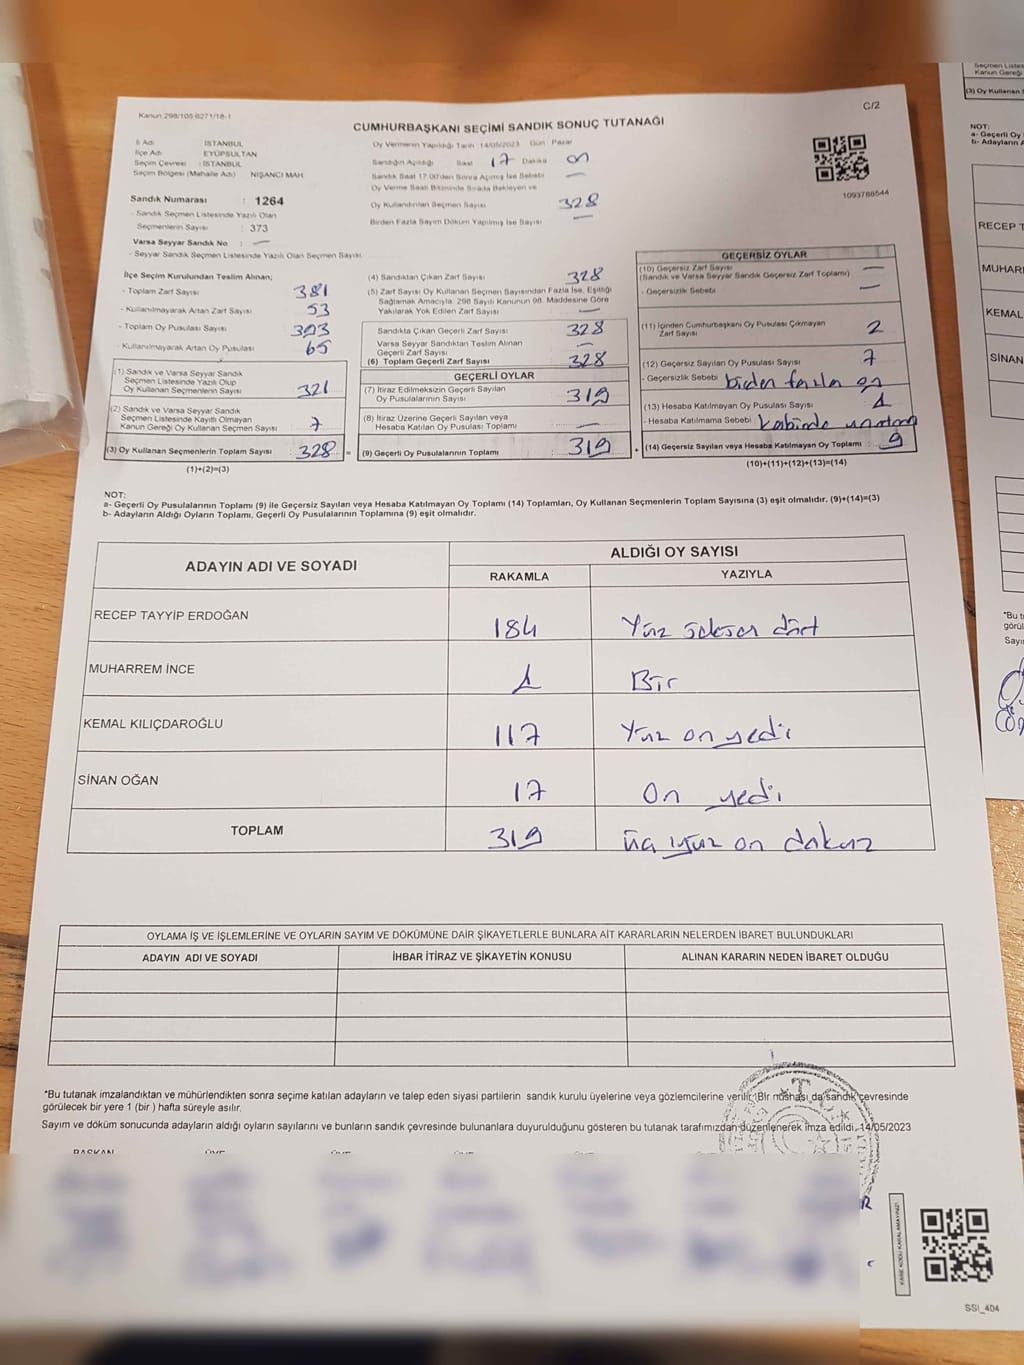 Kanun 298/105 6271/18-1
C/2
CUMHURBAŞKANI SEÇİMİ SANDIK SONUÇ TUTANAĞI
İl Adı : İSTANBUL
İlçe Adı : EYÜPSULTAN
Seçim Çevresi : İSTANBUL
Seçim Bölgesi (Mahalle Adı) NİŞANCI MAH.
Sandık Numarası : 1264
- Sandık Seçmen Listesinde Yazılı Olan
Seçmenlerin Sayısı : 373
Varsa Seyyar Sandık No : —
- Seyyar Sandık Seçmen Listesinde Yazılı Olan Seçmen Sayısı
Oy Vermenin Yapıldığı Tarih 14/05/2023 Gün Pazar
Sandığın Açıldığı Saat 17 Dakika
Sandık Saat 17.00'den Sonra Açılmış İse Sebebi —
Oy Verme Saati Bitiminde Sırada Bekleyen ve
Oy Kullandırılan Seçmen Sayısı 328
Birden Fazla Sayım Döküm Yapılmış İse Sayısı —
1093788544
İlçe Seçim Kurulundan Teslim Alınan;
- Toplam Zarf Sayısı 381
- Kullanılmayarak Artan Zarf Sayısı 53
- Toplam Oy Pusulası Sayısı
- Kullanılmayarak Artan Oy Pusulası 65
(1) Sandık ve Varsa Seyyar Sandık
Seçmen Listesinde Yazılı Olup
Oy Kullanan Seçmenlerin Sayısı 321
(2) Sandık ve Varsa Seyyar Sandık
Seçmen Listesinde Kayıtlı Olmayan
Kanun Gereği Oy Kullanan Seçmen Sayısı 7
(3) Oy Kullanan Seçmenlerin Toplam Sayısı 328 =
(1)+(2)=(3)
(4) Sandıktan Çıkan Zarf Sayısı 328
(5) Zarf Sayısı Oy Kullanan Seçmen Sayısından Fazla İse, Eşitliği
Sağlamak Amacıyla, 298 Sayılı Kanunun 98. Maddesine Göre
Yakılarak Yok Edilen Zarf Sayısı —
Sandıkta Çıkan Geçerli Zarf Sayısı 328
Varsa Seyyar Sandıktan Teslim Alınan
Geçerli Zarf Sayısı —
(6) Toplam Geçerli Zarf Sayısı 328
GEÇERLİ OYLAR
(7) İtiraz Edilmeksizin Geçerli Sayılan
Oy Pusulalarının Sayısı 319
(8) İtiraz Üzerine Geçerli Sayılan veya
Hesaba Katılan Oy Pusulası Toplamı —
(9) Geçerli Oy Pusulalarının Toplamı 319 +
GEÇERSİZ OYLAR
(10) Geçersiz Zarf Sayısı —
(Sandık ve Varsa Seyyar Sandık Geçersiz Zarf Toplamı)
- Geçersizlik Sebebi —
(11) İçinden Cumhurbaşkanı Oy Pusulası Çıkmayan
Zarf Sayısı 2
(12) Geçersiz Sayılan Oy Pusulası Sayısı 7
- Geçersizlik Sebebi birden fazla oy
(13) Hesaba Katılmayan Oy Pusulası Sayısı 1
- Hesaba Katılmama Sebebi kabinde
(14) Geçersiz Sayılan veya Hesaba Katılmayan Oy Toplamı 9
(10)+(11)+(12)+(13)=(14)
NOT:
a- Geçerli Oy Pusulalarının Toplamı (9) ile Geçersiz Sayılan veya Hesaba Katılmayan Oy Toplamı (14) Toplamları, Oy Kullanan Seçmenlerin Toplam Sayısına (3) eşit olmalıdır. (9)+(14)=(3)
b- Adayların Aldığı Oyların Toplamı, Geçerli Oy Pusulalarının Toplamına (9) eşit olmalıdır.
ADAYIN ADI VE SOYADI
ALDIĞI OY SAYISI
RAKAMLA YAZIYLA
RECEP TAYYİP ERDOĞAN 184 Yüz seksen dört
MUHARREM İNCE 1 Bir
KEMAL KILIÇDAROĞLU 117 Yüz on yedi
SİNAN OĞAN 17 On yedi
TOPLAM 319 üç yüz on dokuz
OYLAMA İŞ VE İŞLEMLERİNE VE OYLARIN SAYIM VE DÖKÜMÜNE DAİR ŞİKAYETLERLE BUNLARA AİT KARARLARIN NELERDEN İBARET BULUNDUKLARI
ADAYIN ADI VE SOYADI İHBAR İTİRAZ VE ŞİKAYETİN KONUSU ALINAN KARARIN NEDEN İBARET OLDUĞU
*Bu tutanak imzalandıktan ve mühürlendikten sonra seçime katılan adayların ve talep eden siyasi partilerin sandık kurulu üyelerine veya gözlemcilerine verilir. Bir nüshası da sandık çevresinde
görülecek bir yere 1 (bir ) hafta süreyle asılır.
Sayım ve döküm sonucunda adayların aldığı oyların sayılarını ve bunların sandık çevresinde bulunanlara duyurulduğunu gösteren bu tutanak tarafımızdan düzenlenerek imza edildi. 14/05/2023
BAŞKAN ÜYE ÜYE ÜYE ÜYE
T.C.
KARE KODU KARALAMAYINIZ!
SSI_404
Seçmen Listes
Kanun Gereği
(3) Oy Kullanan S
NOT:
a- Geçerli Oy
b- Adayların A
RECEP T
MUHARR
KEMAL
SİNAN
*Bu t
görül
Sayı